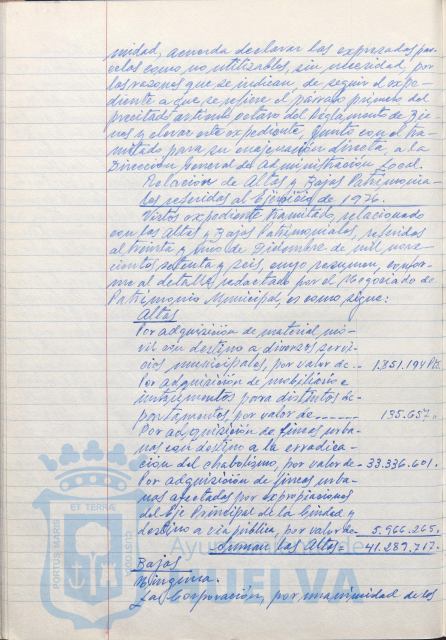 nidad, acuerda declarar las expresadas par-
celas como no utilizables, sin necesidad, por
las razones que se indican, de seguir el expe-
diente a que se refiere el párrafo primero del
precitado artículo octavo del Reglamento de Bie-
nes y elevar este expediente, junto con el tra-
mitado para su enajenación directa, a la
Dirección General de Administración Local.
Relación de Altas y Bajas Patrimonia-
les referidas al Ejercicio de 1976.
Visto expediente tramitado, relacionado
con las Altas y Bajas Patrimoniales, referidas
al treinta y uno de Diciembre de mil nove-
cientos setenta y seis, cuyo resumen, confor-
me al detalle, redactado por el Negociado de
Patrimonio Municipal, es como sigue:
Altas
Por adquisición de material mó-
vil con destino a diversos servi-
cios municipales, por valor de - 1.851.194 Pts.
Por adquisición de mobiliario e
instrumentos para distintos de-
partamentos por valor de ------ 135.657.
Por adquisición de fincas urba-
nas con destino a la erradica-
ción del chabolismo, por valor de - 33.336.601.
Por adquisición de fincas urba-
nas afectadas por expropiaciones
del Eje Principal de la Ciudad y
destino a vía pública, por valor de - 5.966.265.
Suman las Altas = 41.289.717.
Bajas
Ninguna.
La Corporación, por unanimidad de los
PORTUS MARIS ET TERRAE CUSTODIA
Ayuntamiento de
HUELVA